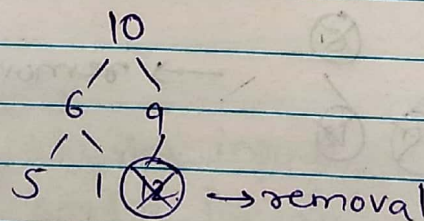 10
6 9
5 1 12 → removal